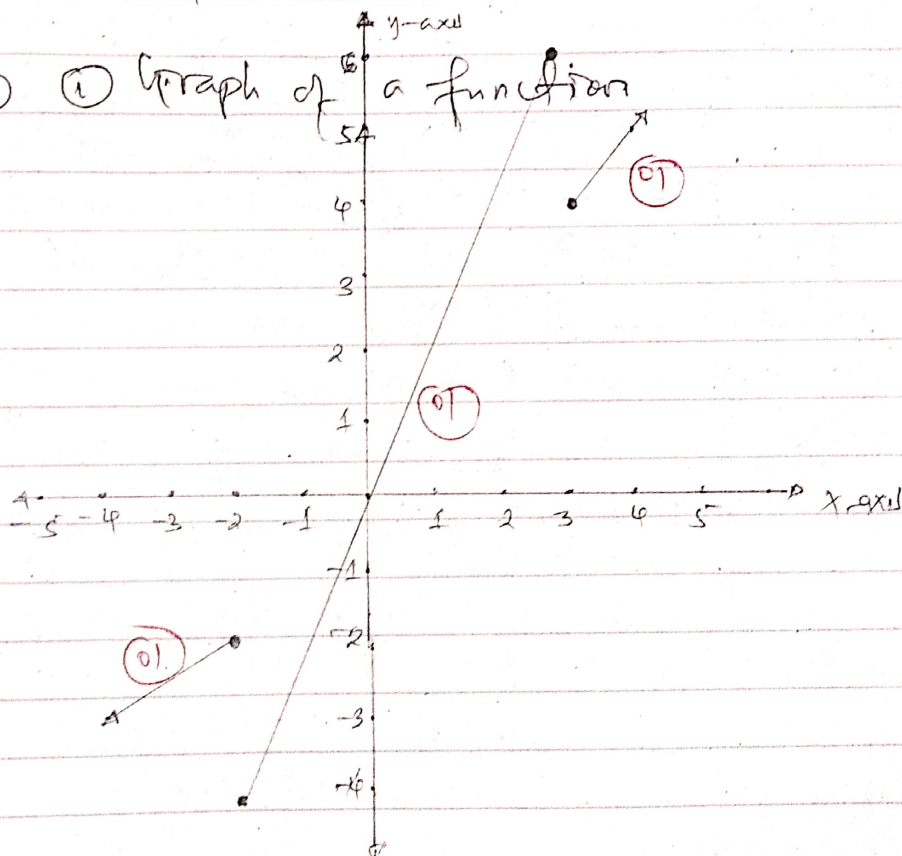 y-axis
6
ⓘ Graph of a function
5
4
01
3
2
01
1
-5 -4 -3 -2 -1 1 2 3 4 5 x-axis
-1
-2
01
-3
-4